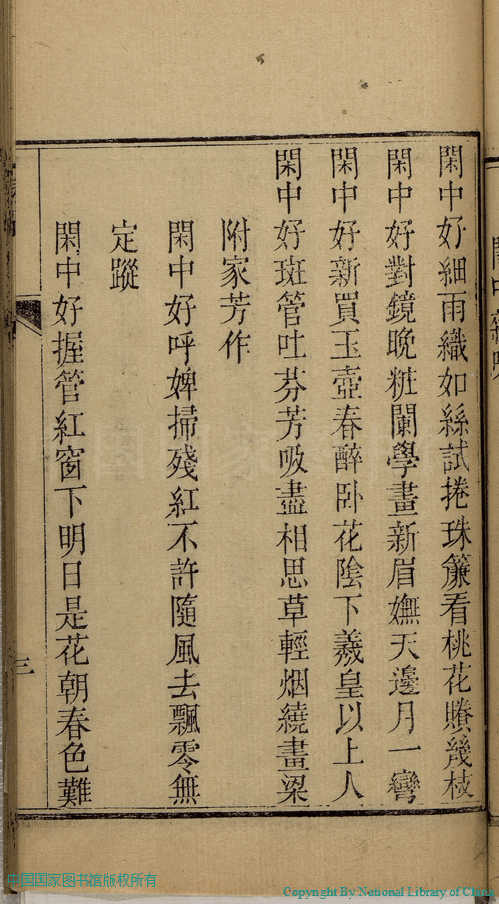 閑中好細雨織如絲試捲珠簾看桃花賸幾枝
閑中好對鏡晚粧闌學畫新眉嫵天邊月一彎
閑中好新買玉壺春醉卧花陰下羲皇以上人
閑中好斑管吐芬芳吸盡相思草輕烟繞畫梁
附家芳作
閑中好呼婢掃殘紅不許隨風去飄零無
定蹤
閑中好握管紅窗下明日是花朝春色難
三
中国国家图书馆版权所有
Copyright By National Library of China